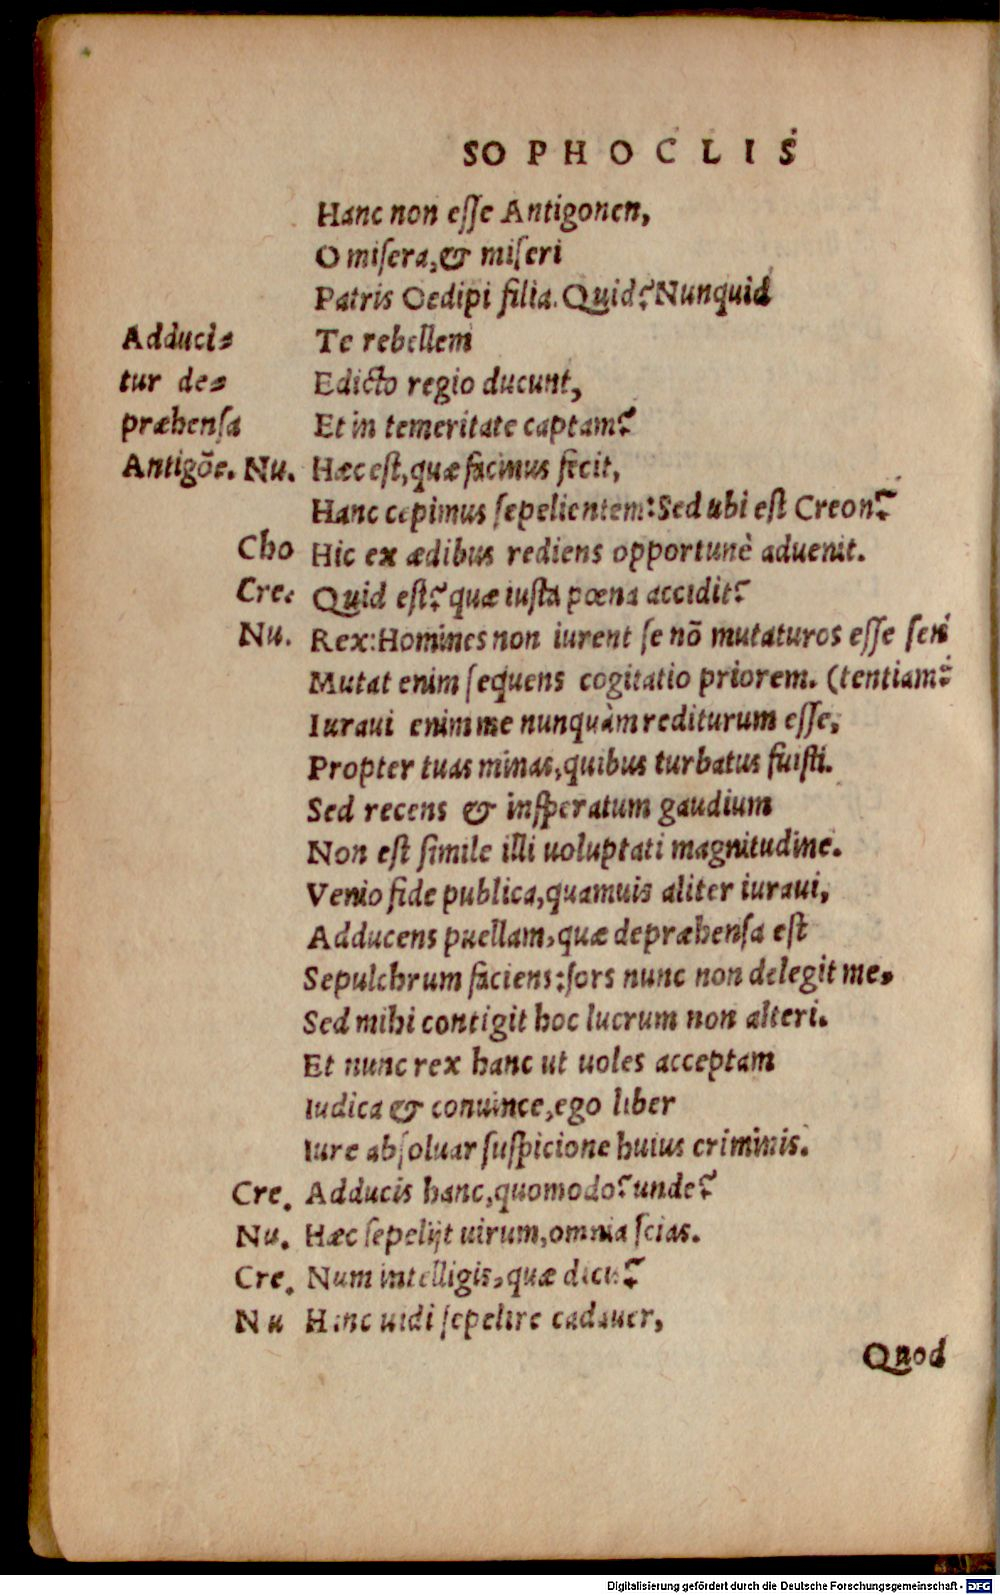 SOPHOCLIS
Hanc non esse Antigonen,
O misera, & miseri
Patris Oedipi filia. Quid? Nunquid
Adduci= Te rebellem
tur de= Edicto regio ducunt,
præhensa Et in temeritate captam?
Antigõe. Nu. Hæc est, quæ facinus fecit,
Hanc cepimus sepelientem: Sed ubi est Creon?
Cho Hic ex ædibus rediens opportunè aduenit.
Cre. Quid est? quæ iusta pœna accidit?
Nu. Rex: Homines non iurent se nõ mutaturos esse sen
Mutat enim sequens cogitatio priorem. (tentiam:
Iuraui enim me nunquàm rediturum esse,
Propter tuas minas, quibus turbatus fuisti.
Sed recens & insperatum gaudium
Non est simile illi uoluptati magnitudine.
Venio fide publica, quamuis aliter iuraui,
Adducens puellam, quæ depræhensa est
Sepulchrum faciens: sors nunc non delegit me,
Sed mihi contigit hoc lucrum non alteri.
Et nunc rex hanc ut uoles acceptam
Iudica & conuince, ego liber
Iure absoluar suspicione huius criminis.
Cre. Adducis hanc, quomodo? unde?
Nu. Hæc sepelijt uirum, omnia scias.
Cre. Num intelligis, quæ dicis?
Nu Hanc uidi sepelire cadauer,
Quod
Digitalisierung gefördert durch die Deutsche Forschungsgemeinschaft - DFG